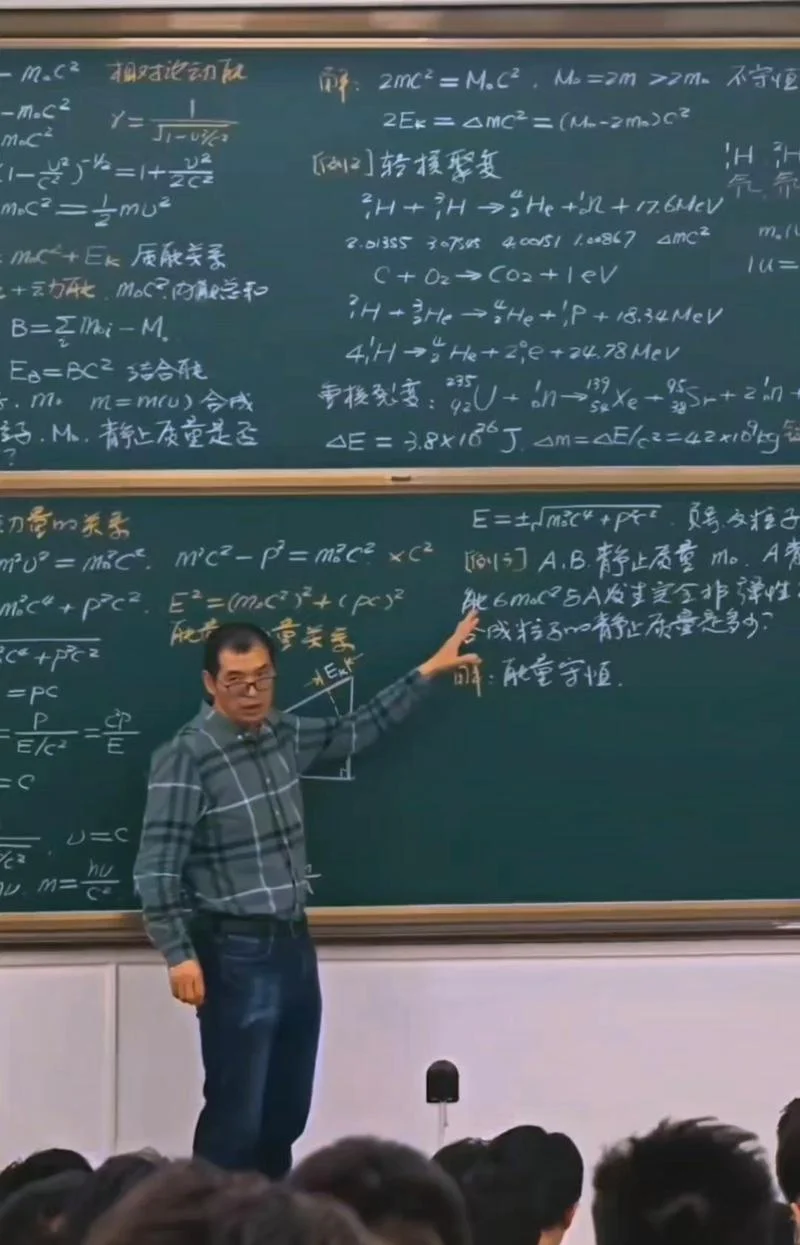 - m₀c² 相对论动能
γ = 1/√(1-υ²/c²)
- m₀c²
m₀c²
(1 - υ²/c²)^(-1/2) = 1 + υ²/2c²
m₀c² = 1/2 mυ²
m₀c² + Eₖ 质能关系
+ 动能. m₀c² 内能总和
B = ∑ m₀ᵢ - M₀
E_B = BC² 结合能
m₀ m = m(υ) 合成
粒子. M₀. 静止质量是否
?
解: 2mc² = M₀c². M₀ = 2m > 2m₀ 不守恒
2Eₖ = Δmc² = (M₀ - 2m₀)c²
[例2] 轻核聚变
²₁H + ³₁H → ⁴₂He + ¹₀n + 17.6MeV
2.01355 4.00151 1.00867 Δmc²
C + O₂ → CO₂ + 1eV
²₁H + ³₂He → ⁴₂He + ¹₁P + 18.34MeV
4¹₁H → ⁴₂He + 2⁰₁e + 24.78MeV
重核裂变: ²³⁵₉₂U + ¹₀n → ¹³⁹₅₄Xe + ⁹⁵₃₈Sr + 2¹₀n +
ΔE = 3.8×10²⁶J. Δm = ΔE/c² = 4.2×10⁹kg
¹₁H ²₁H
氕. 氘
1u =
动量的关系
m²υ² = m₀²c². m²c² - p² = m₀²c² ×c²
m₀²c⁴ + p²c². E² = (m₀c²)² + (pc)²
能量 量关系
c⁴ + p²c²
= pc
= P/(E/c²) = c²P/E
= c
υ = c
m = hν/c²
Eₖ
E = ±√(m₀²c⁴ + p²c²). 负号反粒子
[例3] A.B. 静止质量 m₀. A静
能6m₀c²与A发生完全非弹性
合成粒子的静止质量是多少?
解: 能量守恒.